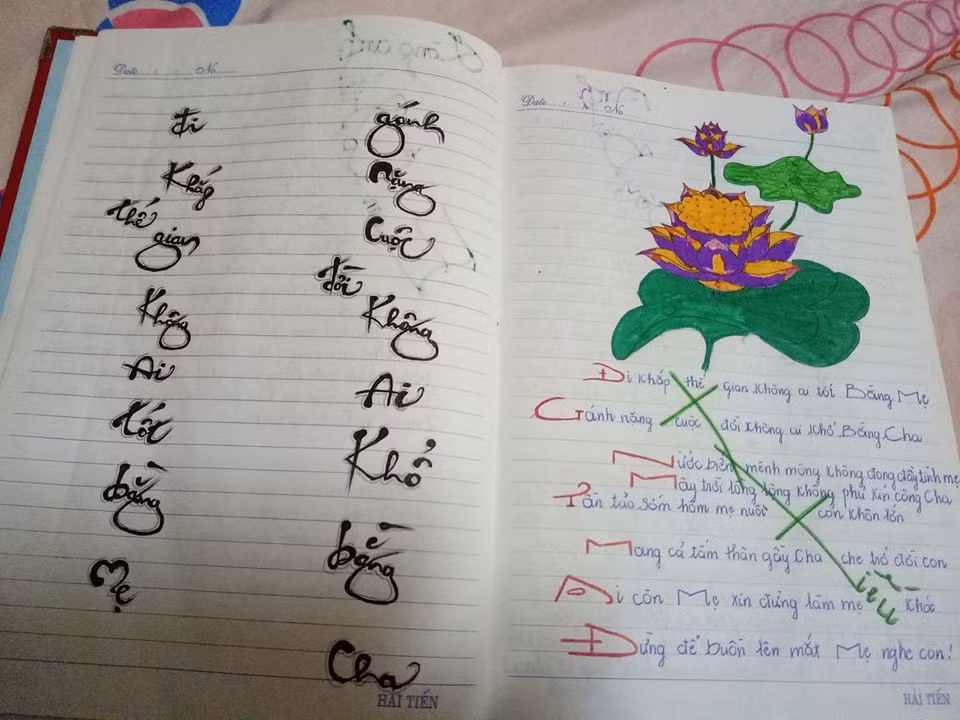 Date No
đi
Khắp
thế
gian
Không
Ai
tốt
bằng
Mẹ
gánh
Nặng
Cuộc
đời
Không
Ai
Khổ
bằng
Cha
HẢI TIẾN
Date No
Đi Khắp thế gian Không ai tốt Bằng Mẹ
Gánh nặng cuộc đời Không ai khổ Bằng Cha
Nước biển mênh mông không đong đầy tình mẹ
Mây trời lồng lộng không phủ kín công Cha
Tần tảo sớm hôm mẹ nuôi con khôn lớn
Mang cả tấm thân gầy Cha che trở đời con
Ai còn Mẹ xin đừng làm mẹ khóc
Đừng để buồn lên mắt Mẹ nghe con!
HẢI TIẾN